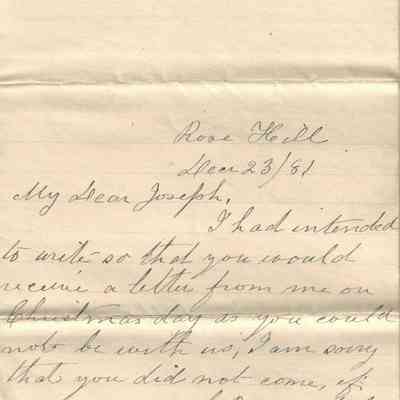 Rose Hill
Decr 23/81
My Dear Joseph,
I had intended
to write so that you would
receive a letter from me on
Christmas day as you could
not be with us, I am sorry
that you did not come, if